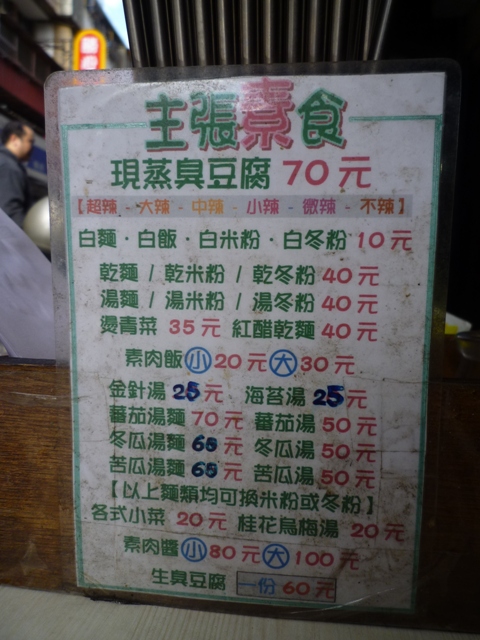 主張素食
現蒸臭豆腐 70元
【超辣 - 大辣 - 中辣 - 小辣 - 微辣 - 不辣】
白麵 · 白飯 · 白米粉 · 白冬粉 10元
乾麵 / 乾米粉 / 乾冬粉 40元
湯麵 / 湯米粉 / 湯冬粉 40元
燙青菜 35元 紅醋乾麵 40元
素肉飯 小 20元 大 30元
金針湯 25元 海苔湯 25元
蕃茄湯麵 70元 蕃茄湯 50元
冬瓜湯麵 65元 冬瓜湯 50元
苦瓜湯麵 65元 苦瓜湯 50元
【以上麵類均可換米粉或冬粉】
各式小菜 20元 桂花烏梅湯 20元
素肉醬 小 80元 大 100元
生臭豆腐 一份 60元